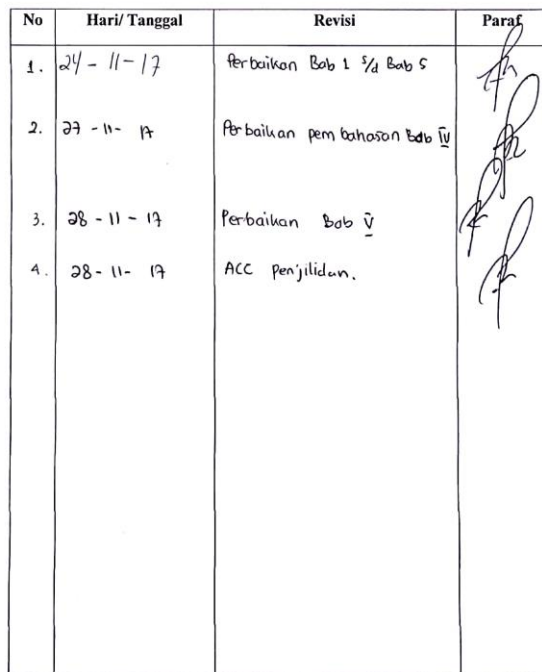 No Hari/ Tanggal Revisi Paraf
1. 24 - 11 - 17 Perbaikan Bab 1 s/d Bab 5
2. 27 - 11 - 17 Perbaikan pembahasan Bab IV
3. 28 - 11 - 17 Perbaikan Bab V
4. 28 - 11 - 17 ACC penjilidan.